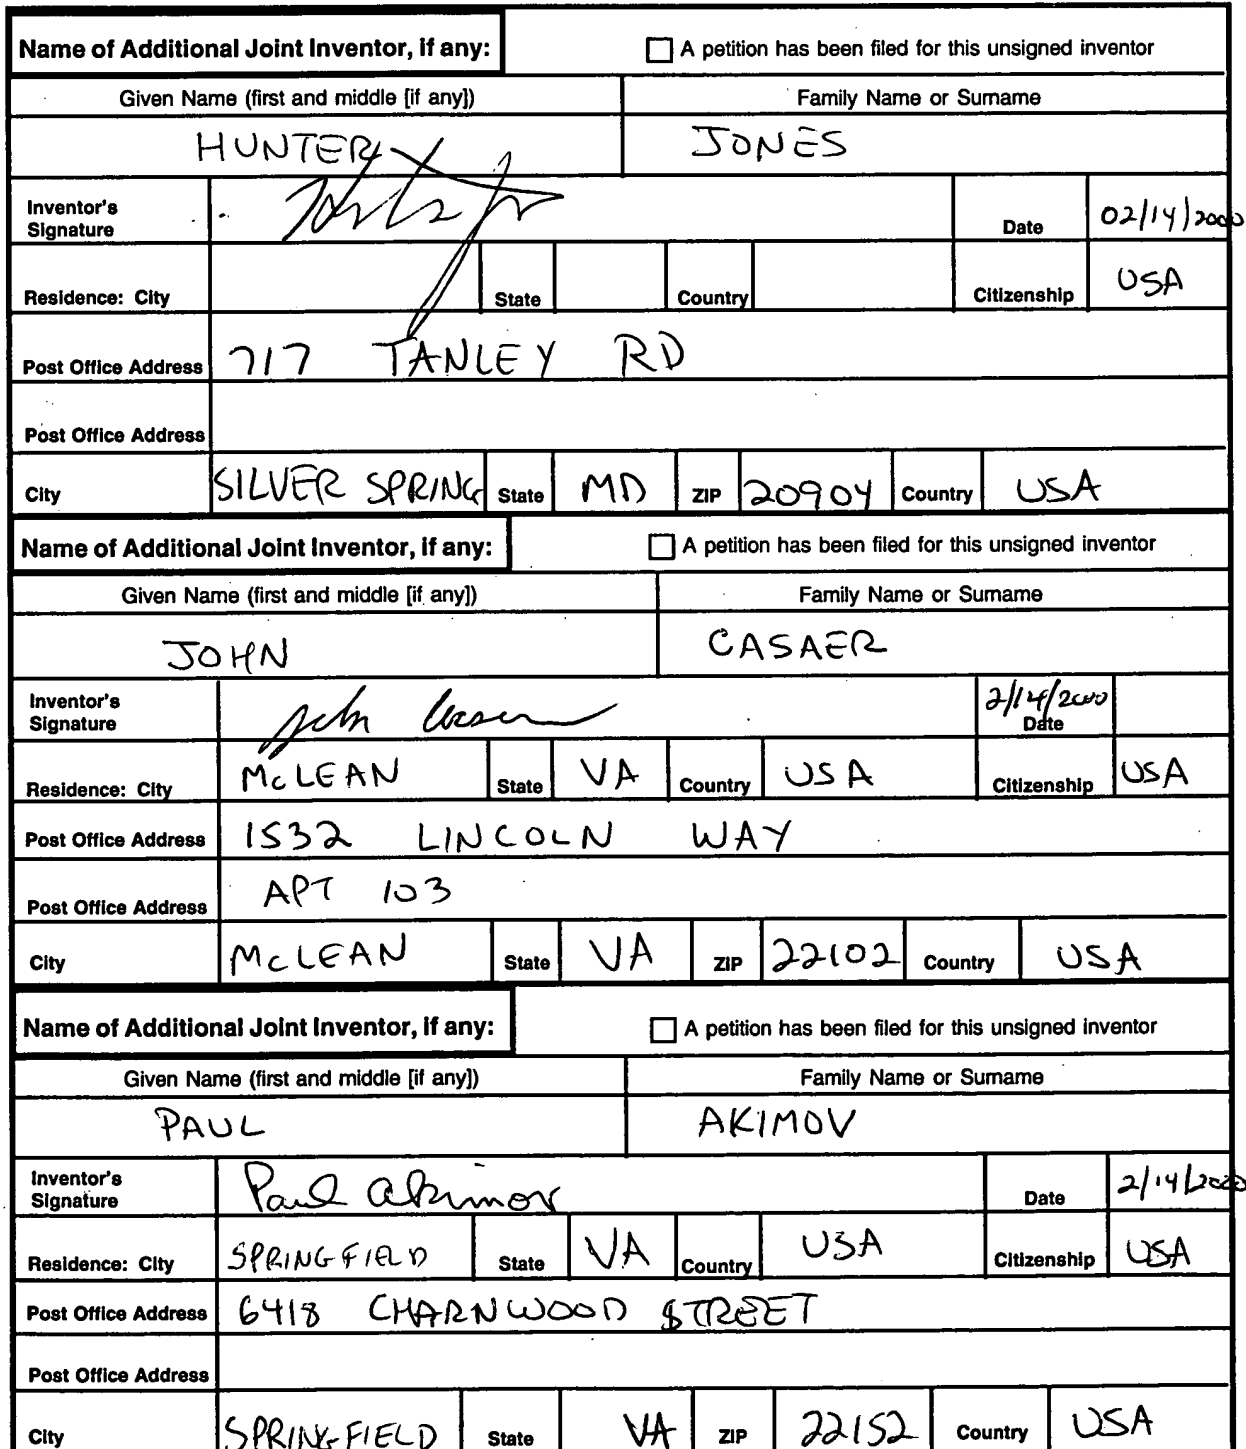 Name of Additional Joint Inventor, if any: A petition has been filed for this unsigned inventor
Given Name (first and middle [if any]) Family Name or Surname
HUNTER JONES
Inventor's Signature Date 02/14/2000
Residence: City State Country Citizenship USA
Post Office Address 717 TANLEY RD
Post Office Address
City SILVER SPRING State MD ZIP 20904 Country USA
Name of Additional Joint Inventor, if any: A petition has been filed for this unsigned inventor
Given Name (first and middle [if any]) Family Name or Surname
JOHN CASAER
Inventor's Signature John Casaer 2/14/2000 Date
Residence: City McLEAN State VA Country USA Citizenship USA
Post Office Address 1532 LINCOLN WAY
Post Office Address APT 103
City McLEAN State VA ZIP 22102 Country USA
Name of Additional Joint Inventor, if any: A petition has been filed for this unsigned inventor
Given Name (first and middle [if any]) Family Name or Surname
PAUL AKIMOV
Inventor's Signature Paul Akimov Date 2/14/2000
Residence: City SPRINGFIELD State VA Country USA Citizenship USA
Post Office Address 6418 CHARNWOOD STREET
Post Office Address
City SPRINGFIELD State VA ZIP 22152 Country USA